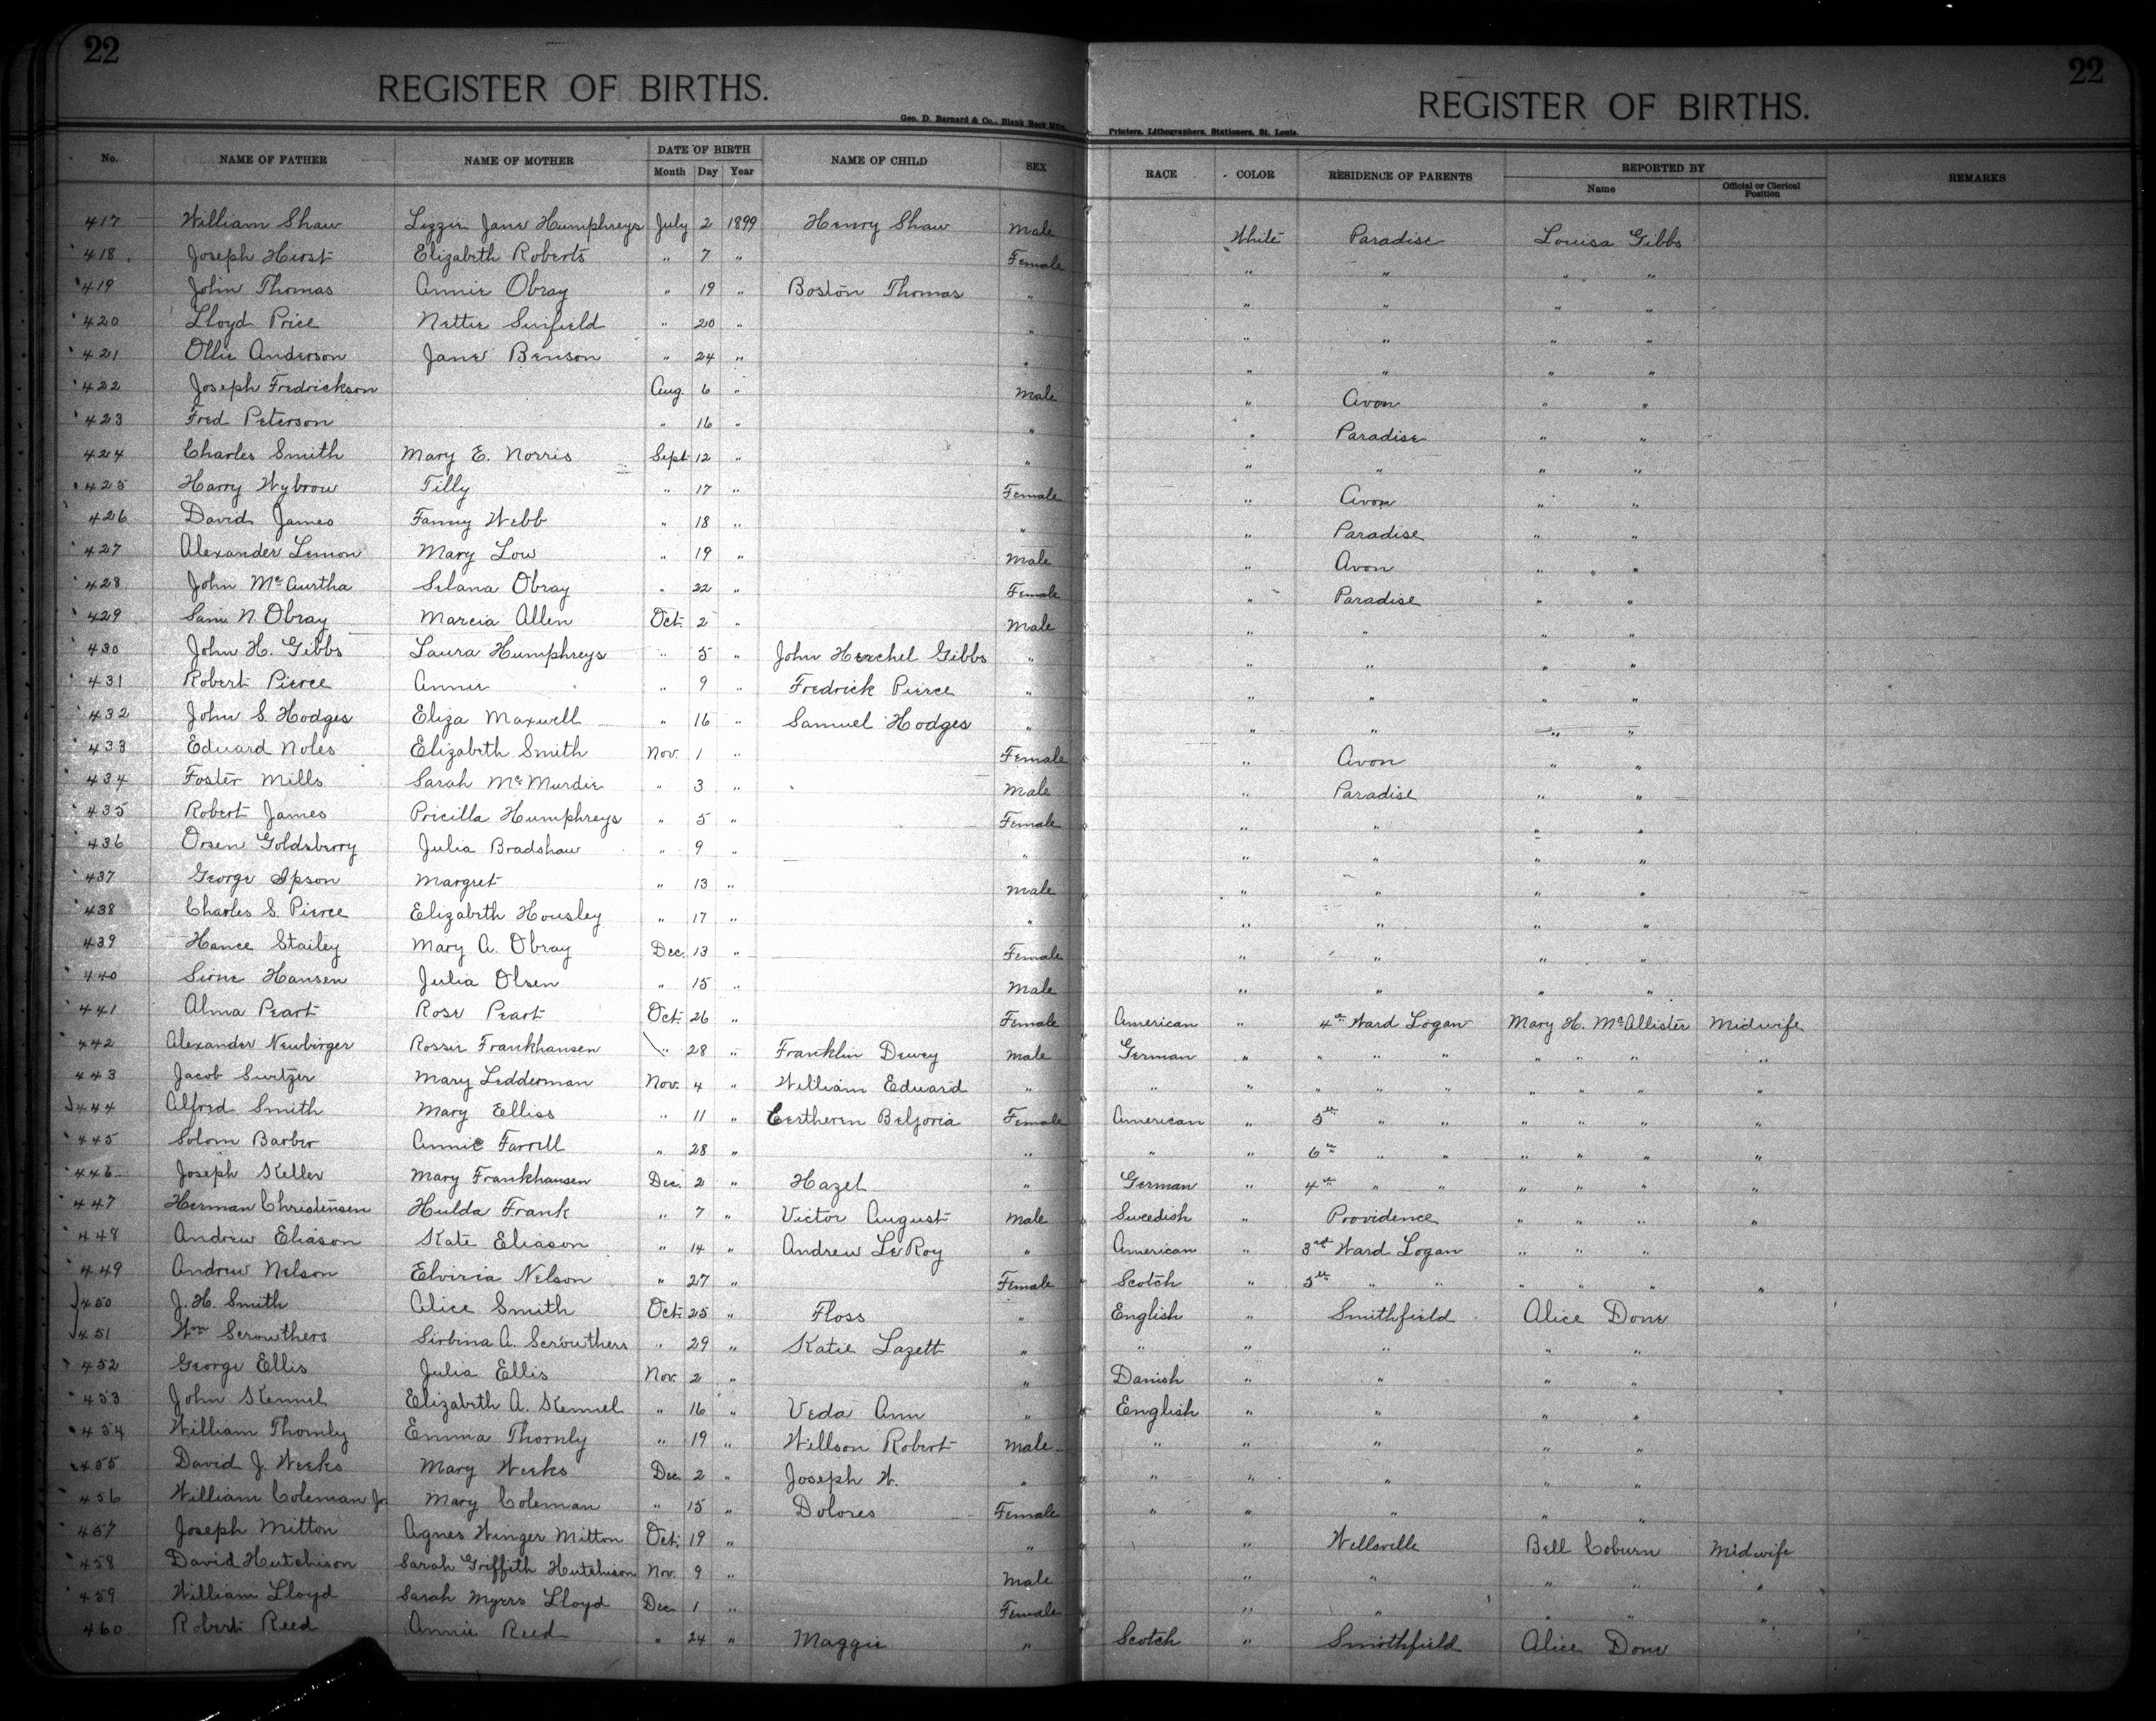 22
22
REGISTER OF BIRTHS.
REGISTER OF BIRTHS.
Geo. D. Barnard & Co., Blank Book Mfrs.
Printers, Lithographers, Stationers, St. Louis.
No. NAME OF FATHER NAME OF MOTHER DATE OF BIRTH Month Day Year NAME OF CHILD SEX RACE COLOR RESIDENCE OF PARENTS REPORTED BY Name Official or Clerical Position REMARKS
417 William Shaw Lizzie Jane Humphreys July 2 1899 Henry Shaw Male White Paradise Louisa Gibbs
418 Joseph Hirst Elizabeth Roberts " 7 " Female " " " "
419 John Thomas Annie Obray " 19 " Boston Thomas " " " " "
420 Lloyd Price Nettie Sinfield " 20 " " " " " "
421 Ollie Anderson Jane Benson " 24 " " " " " "
422 Joseph Fredrickson Aug. 6 " Male " Avon " "
423 Fred Peterson " 16 " " " Paradise " "
424 Charles Smith Mary E. Norris Sept 12 " " " " " "
425 Harry Wybrow Tilly " 17 " Female " Avon " "
426 David James Fanny Webb " 18 " " " Paradise " "
427 Alexander Lemon Mary Low " 19 " Male " Avon " "
428 John McCurtha Selana Obray " 22 " Female " Paradise " "
429 Sam N. Obray Marcia Allen Oct. 2 " Male " " " "
430 John H. Gibbs Laura Humphreys " 5 " John Herchel Gibbs " " " " "
431 Robert Pierce Annie " 9 " Fredrick Pierce " " " " "
432 John S. Hodges Eliza Maxwell " 16 " Samuel Hodges " " " " "
433 Edward Noles Elizabeth Smith Nov. 1 " Female " Avon " "
434 Foster Mills Sarah McMurdie " 3 " Male " Paradise " "
435 Robert James Pricilla Humphreys " 5 " Female " " " "
436 Orsen Goldsberry Julia Bradshaw " 9 " " " " " "
437 George Ipson Margret " 13 " Male " " " "
438 Charles S. Pierce Elizabeth Housley " 17 " " " " " "
439 Hance Stailey Mary A. Obray Dec. 13 " Female " " " "
440 Sirne Hansen Julia Olsen " 15 " Male " " " "
441 Alma Peart Rose Peart Oct. 26 " Female American " 4th Ward Logan Mary H. McAllister Midwife
442 Alexander Neubirger Rossie Frankhausen " 28 " Franklin Dewey Male German " " " " " " " "
443 Jacob Switzer Mary Ledderman Nov. 4 " William Edward " " " " " " " " " "
444 Alfred Smith Mary Elliss " 11 " Belzoria Female American " 5th " " " " " "
445 Solom Barber Annie Farrell " 28 " " " " 6th " " " " " "
446 Joseph Keller Mary Frankhausen Dec. 2 " Hazel " German " 4th " " " " " "
447 Herman Christensen Hulda Frank " 7 " Victor August Male Swedish " Providence " " " "
448 Andrew Eliason Kate Eliason " 14 " Andrew LeRoy " American " 3rd Ward Logan " " "
449 Andrew Nelson Elviria Nelson " 27 " Female Scotch " 5th " " " " " "
450 J. H. Smith Alice Smith Oct. 25 " Floss " English " Smithfield Alice Done
451 Wm Scrowthers Sirbina A. Scrowthers " 29 " Katie Lazett " " " " " "
452 George Ellis Julia Ellis Nov. 2 " " Danish " " " "
453 John Kennel Elizabeth A. Kennel " 16 " Veda Ann " English " " " "
454 William Thornly Emma Thornly " 19 " Willson Robert Male " " " " "
455 David J. Weeks Mary Weeks Dec. 2 " Joseph W. " " " " " "
456 William Coleman Jr. Mary Coleman " 15 " Dolores Female " " " " "
457 Joseph Mitton Agnes Winger Mitton Oct. 19 " " " Wellsville Bell Coburn Midwife
458 David Hutchison Sarah Griffith Hutchison Nov. 9 " Male " " " " "
459 William Lloyd Sarah Myrrs Lloyd Dec. 1 " Female " " " " "
460 Robert Reed Annie Reed " 24 " Maggie " Scotch " Smithfield Alice Done